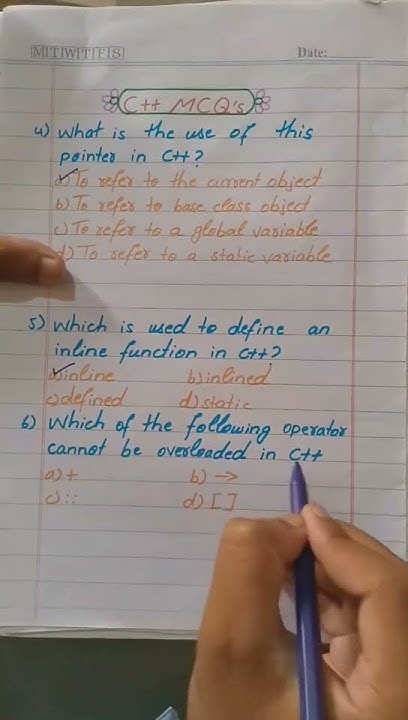 M T W T F S
Date:
C++ MCQ's
4) What is the use of this
pointer in C++?
a) To refer to the current object
b) To refer to base class object
c) To refer to a global variable
d) To refer to a static variable
5) Which is used to define an
inline function in C++?
a) inline b) inlined
c) defined d) static
6) Which of the following operator
cannot be overloaded in C++
a) + b) →
c) :: d) []